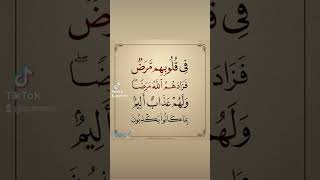 فِى قُلُوبِهِم مَّرَضٌ
فَزَادَهُمُ ٱللَّهُ مَرَضًا ۖ
وَلَهُمْ عَذَابٌ أَلِيمٌۢ
بِمَا كَانُوا۟ يَكْذِبُونَ
TikTok